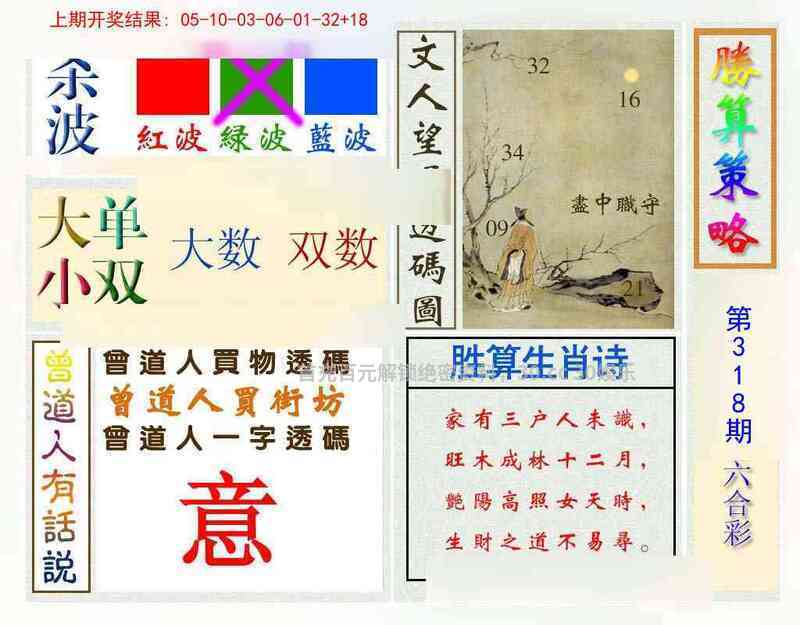 上期开奖结果：05-10-03-06-01-32+18
杀波
紅波 绿波 藍波
大单
小双
大数 双数
文人望
透碼圖
32
16
34
盡中職守
09
21
勝算策略
第318期
六合彩
曾道人有話説
曾道人買物透碼
曾道人買街坊
曾道人一字透碼
意
胜算生肖诗
家有三户人未識，
旺木成林十二月，
艷陽高照女天時，
生財之道不易尋。